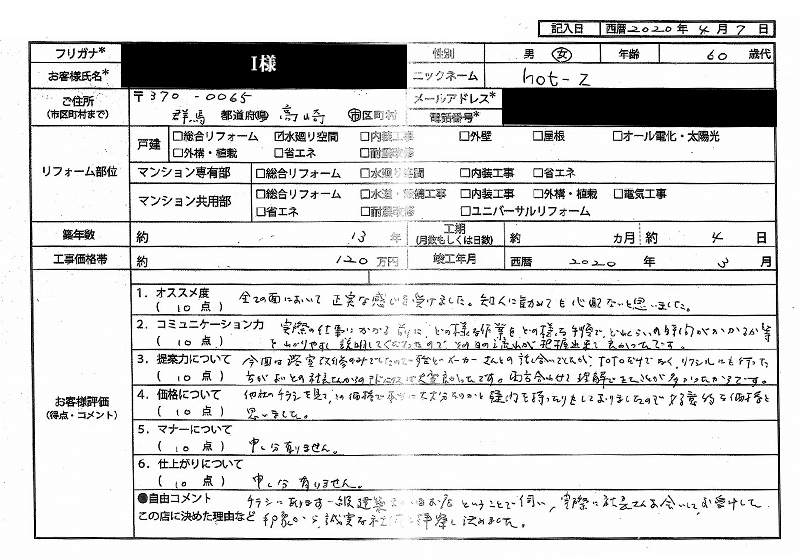 記入日 西暦2020年 4月 7日
フリガナ* I様 性別 男 女 年齢 60 歳代
お客様氏名* ニックネーム hot-z
ご住所 〒370-0065 メールアドレス*
(市区町村まで) 群馬 都道府県 高崎 市区町村 電話番号*
リフォーム部位
戸建 □総合リフォーム ☑水廻り空間 □内装工事 □外壁 □屋根 □オール電化・太陽光
□外構・植栽 □省エネ □耐震改修
マンション専有部 □総合リフォーム □水廻り空間 □内装工事 □省エネ
マンション共用部 □総合リフォーム □水道・設備工事 □内装工事 □外構・植栽 □電気工事
□省エネ □耐震改修 □ユニバーサルリフォーム
築年数 約 13 年 工期 (月数もしくは日数) 約 カ月 約 4 日
工事価格帯 約 120 万円 竣工年月 西暦 2020 年 3 月
お客様評価
(得点・コメント)
1. オススメ度 全ての面において 正実な感じを受けました。知人に勧めても心配ないと思いました。
( 10 点 )
2. コミュニケーション力 実際の仕事にかかる前に、どの様な作業をどの様な手順で、どれくらいの時間がかかるか等
( 10 点 ) とわかりやすく説明してくださったので その日の流れが把握出来て良かったです。
3. 提案力について 今回は浴室改修のみでしたので 殆どメーカーさんとの話し合いでしたが、TOTOだけでなく、リクシルにも行った
( 10 点 ) 方がよいとの社長さんからの
4. 価格について 他社のチラシを見て、この価格で本当に大丈夫なのかと疑問を持ったりもしておりましたので 好意的な価格と
( 10 点 ) 思いました。
5. マナーについて
( 10 点 ) 申し分有りません。
6. 仕上がりについて
( 10 点 ) 申し分 有りません。
●自由コメント チラシにあります一級建築士のいるお店 ということで伺い、実際に社長さんとお会いして お受けした
この店に決めた理由など 印象から、誠実な 決めました。